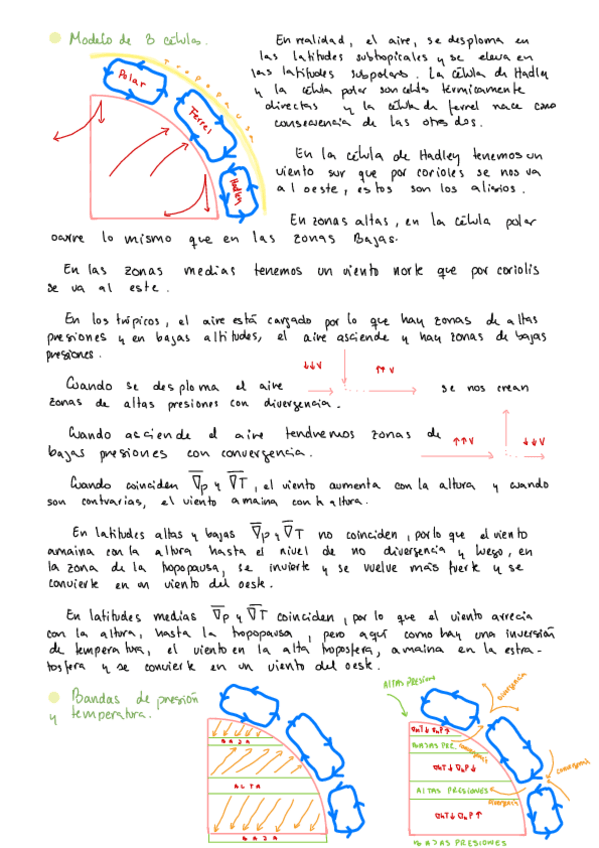 Modelo de 3 células.
En realidad, el aire, se desploma en
las latitudes subtopicales y se eleva en
las latitudes subpolares. La célula de Hadley
y la célula polar son celdas termicamente
directas y la célula de ferrel nace como
consecuencia de las otras dos.
Tropopausa
Polar
Ferrel
Hadley
En la célula de Hadley tenemos un
viento sur que por corioles se nos va
al oeste, estos son los alisios.
En zonas altas, en la célula polar
ocurre lo mismo que en las zonas Bajas.
En las zonas medias tenemos un viento norte que por coriolis
se va al este.
En los trópicos, el aire está cargado por lo que hay zonas de altas
presiones y en bajas altitudes, el aire asciende y hay zonas de bajas
presiones.
Cuando se desploma el aire ↓↓V ↑↑V se nos crean
zonas de altas presiones con divergencia.
Cuando asciende el aire tendremos zonas de ↑↑V ↓↓V
bajas presiones con convergencia.
Cuando coinciden ∇p y ∇T, el viento aumenta con la altura y cuando
son contrarias, el viento amaina con la altura.
En latitudes altas y bajas ∇p y ∇T no coinciden, por lo que el viento
amaina con la altura hasta el nivel de no divergencia y luego, en
la zona de la tropopausa, se invierte y se vuelve más fuerte y se
convierte en un viento del oeste.
En latitudes medias ∇p y ∇T coinciden, por lo que el viento arrecia
con la altura, hasta la tropopausa, pero aquí como hay una inversión
de temperatura, el viento en la alta troposfera, amaina en la estra-
tosfera y se convierte en un viento del oeste.
Bandas de presión
y temperatura.
BAJA
ALTA
BAJA
ALTAS PRESIONES
divergencia
∇hT↓ ∇hP↑
BAJAS PRE.
convergencia
∇hT↓ ∇hP↓
convergencia
ALTAS PRESIONES
divergencia
∇hT↓ ∇hP↑
BAJAS PRESIONES